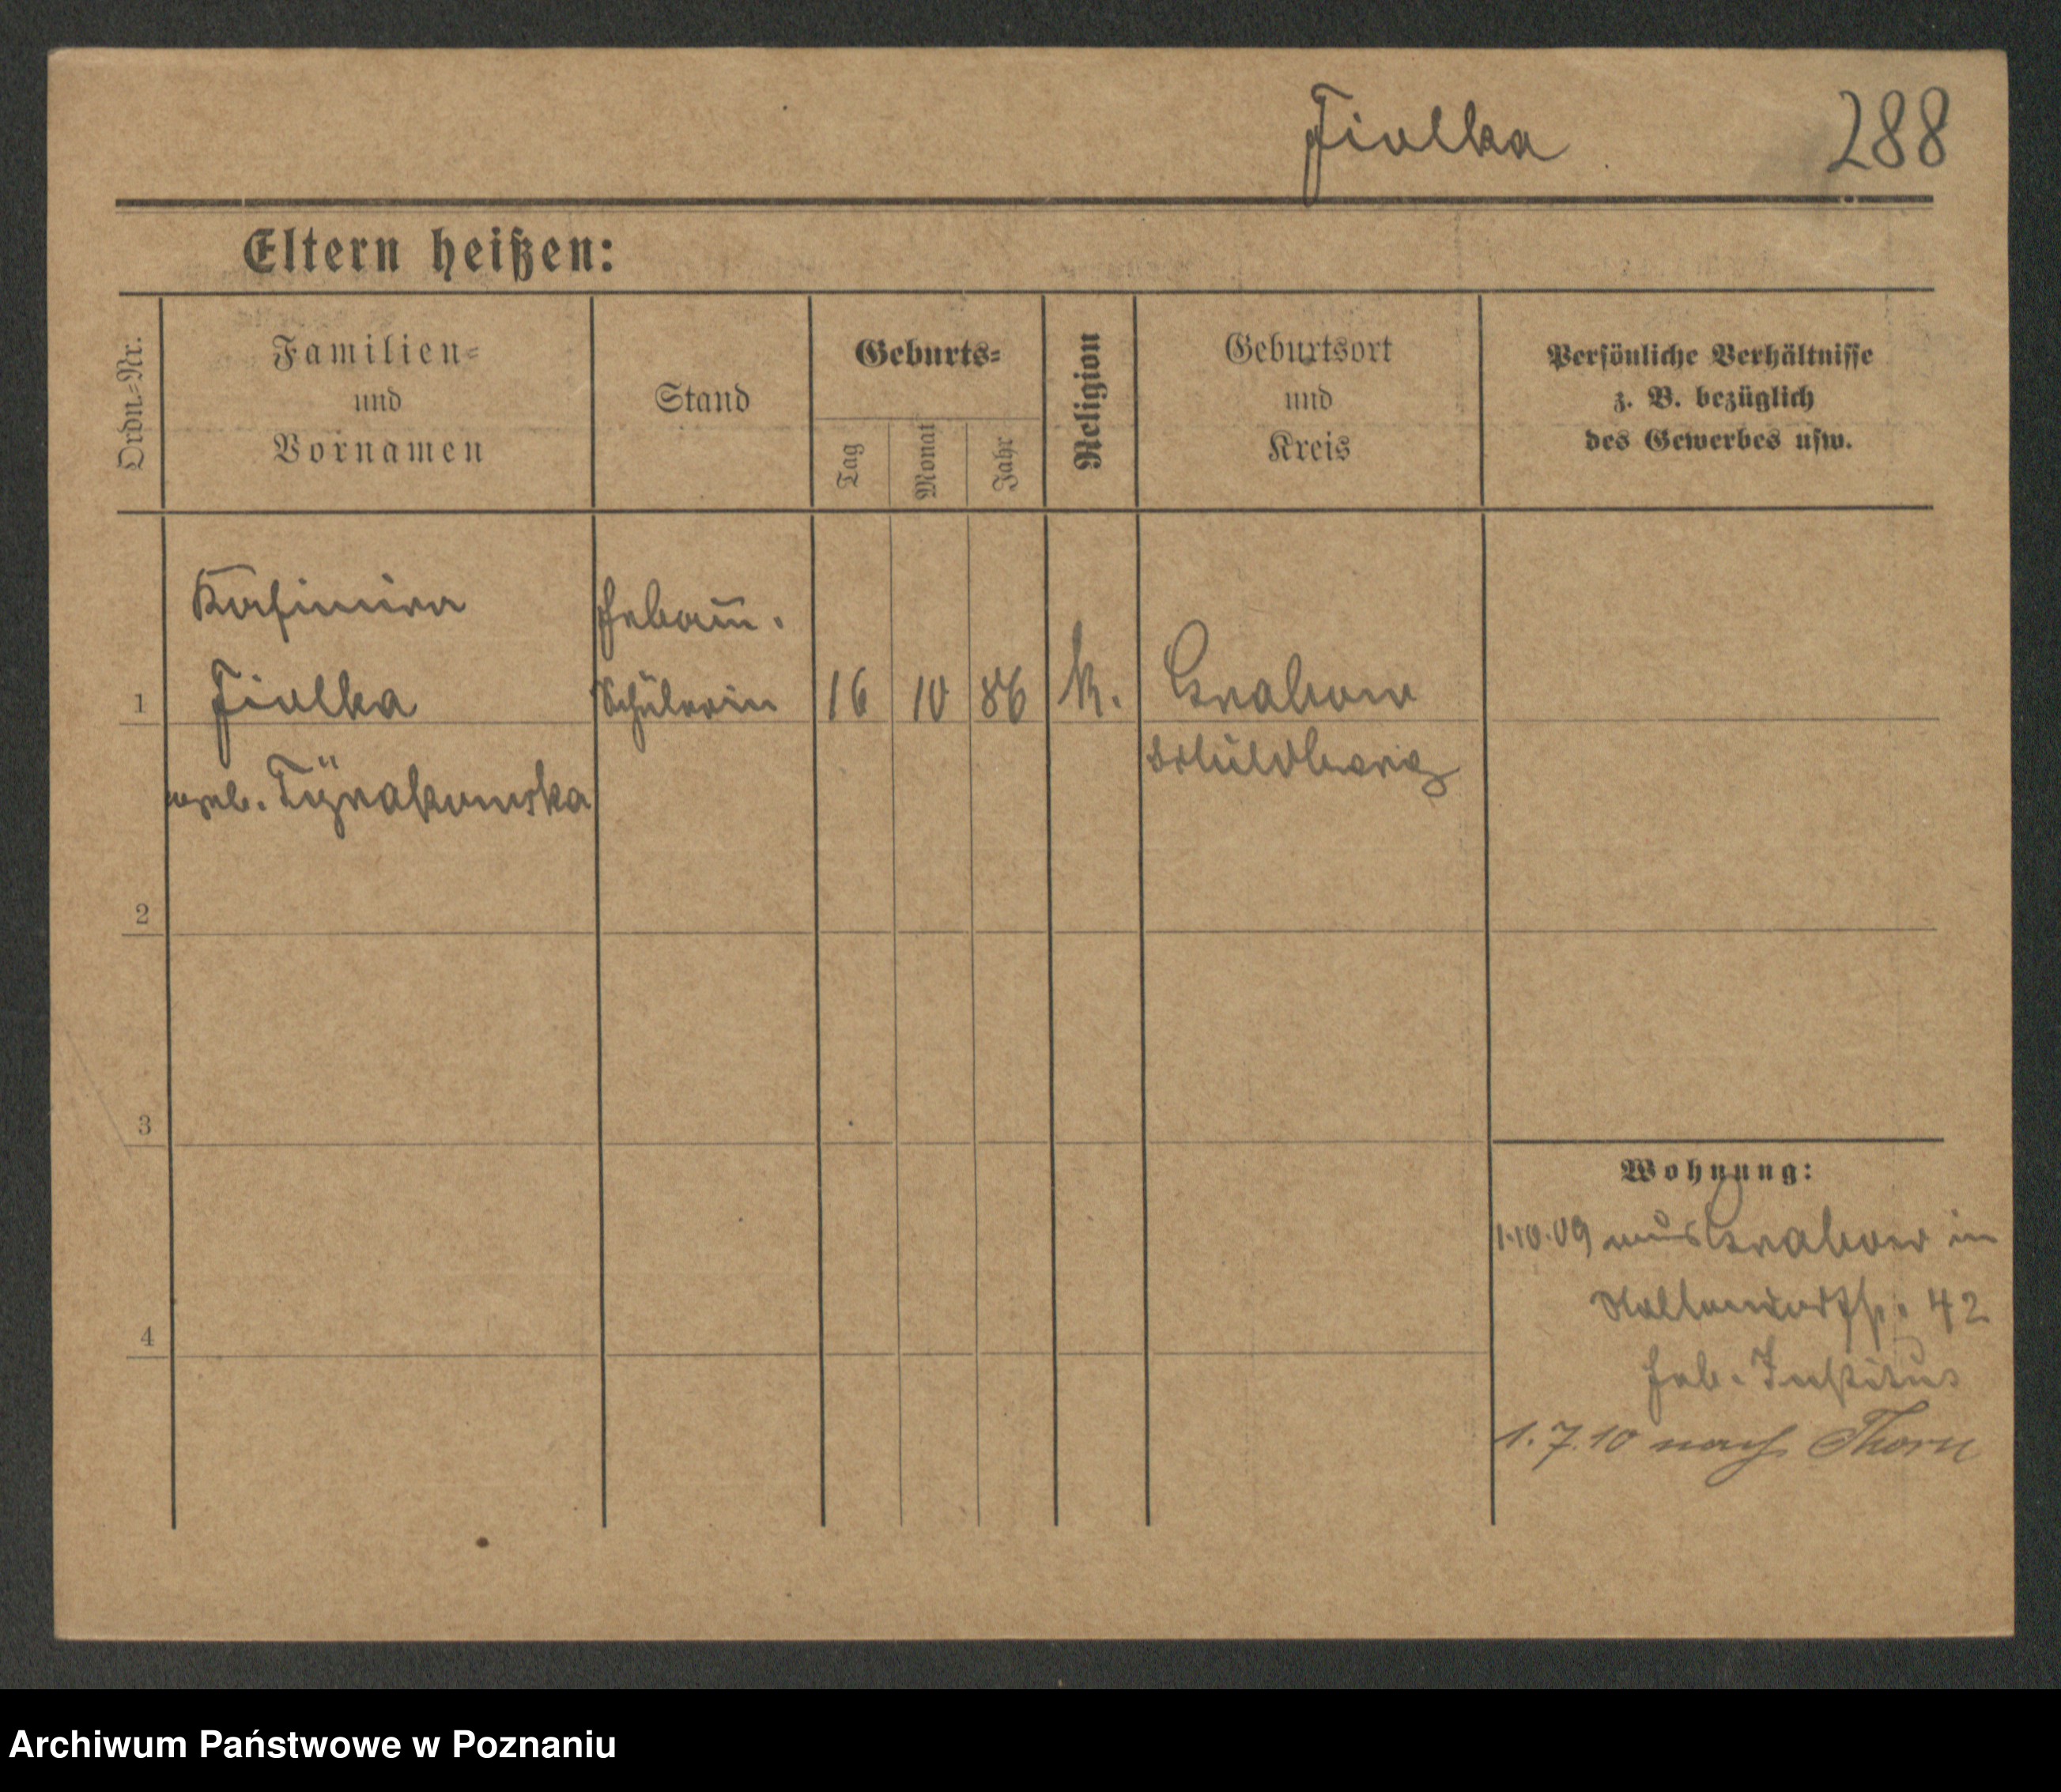 Fiolka 288
Eltern heißen:
Ordn.-Nr.
Familien-
und
Vornamen
Stand
Geburts-
Tag
Monat
Jahr
Religion
Geburtsort
und
Kreis
Persönliche Verhältnisse
z. B. bezüglich
des Gewerbes usw.
Kasimira Hebam̄.
1 Fiolka Schülerin 16 10 86 k. Grabow
geb. Schildberg
2
3
4
Wohnung:
1.10.09 aus Grabow in
42
Heb. Institus
1.7.10 nach Thorn
Archiwum Państwowe w Poznaniu